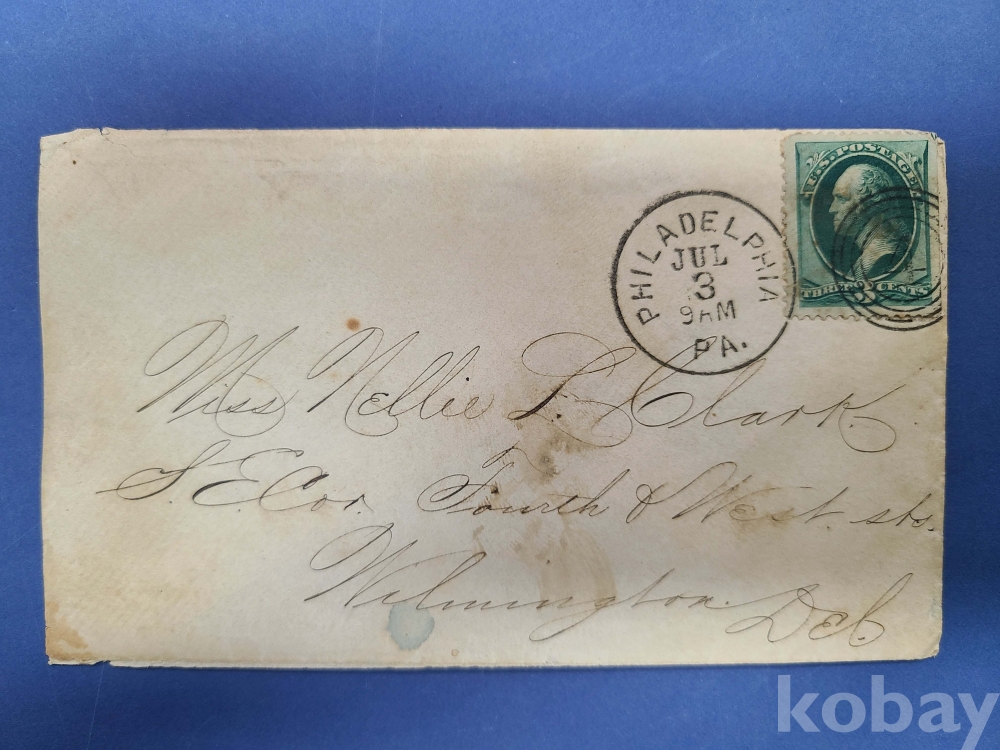 U.S. POSTAGE
THREE CENTS
PHILADELPHIA
JUL
3
9AM
PA.
Miss Nellie L. Clark.
S. E. Cor. Fourth & West. sts.
Wilmington. Del.
kobay